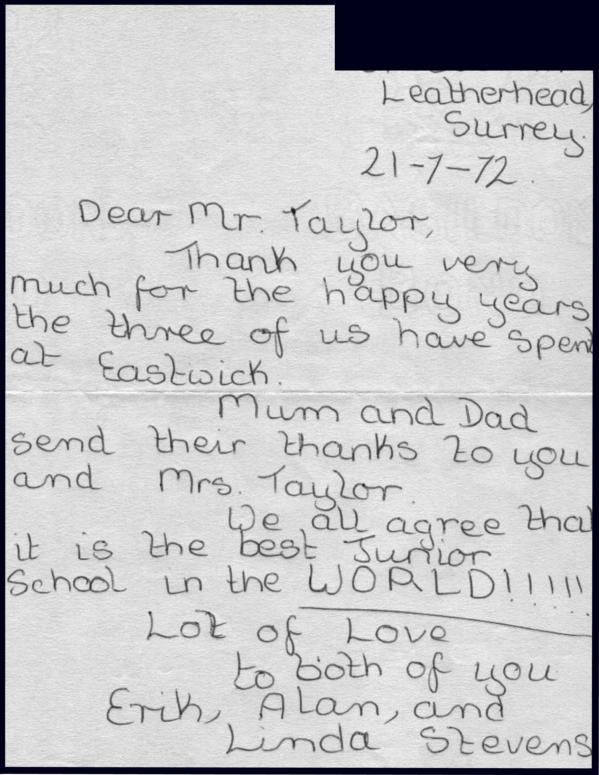 Leatherhead,
Surrey.
21-7-72.
Dear Mr. Taylor,
Thank you very
much for the happy years
the three of us have spent
at Eastwick.
Mum and Dad
send their thanks to you
and Mrs. Taylor.
We all agree that
it is the best Junior
School in the WORLD!!!!!!
Lot of Love
to both of you
Erik, Alan, and
Linda Stevens